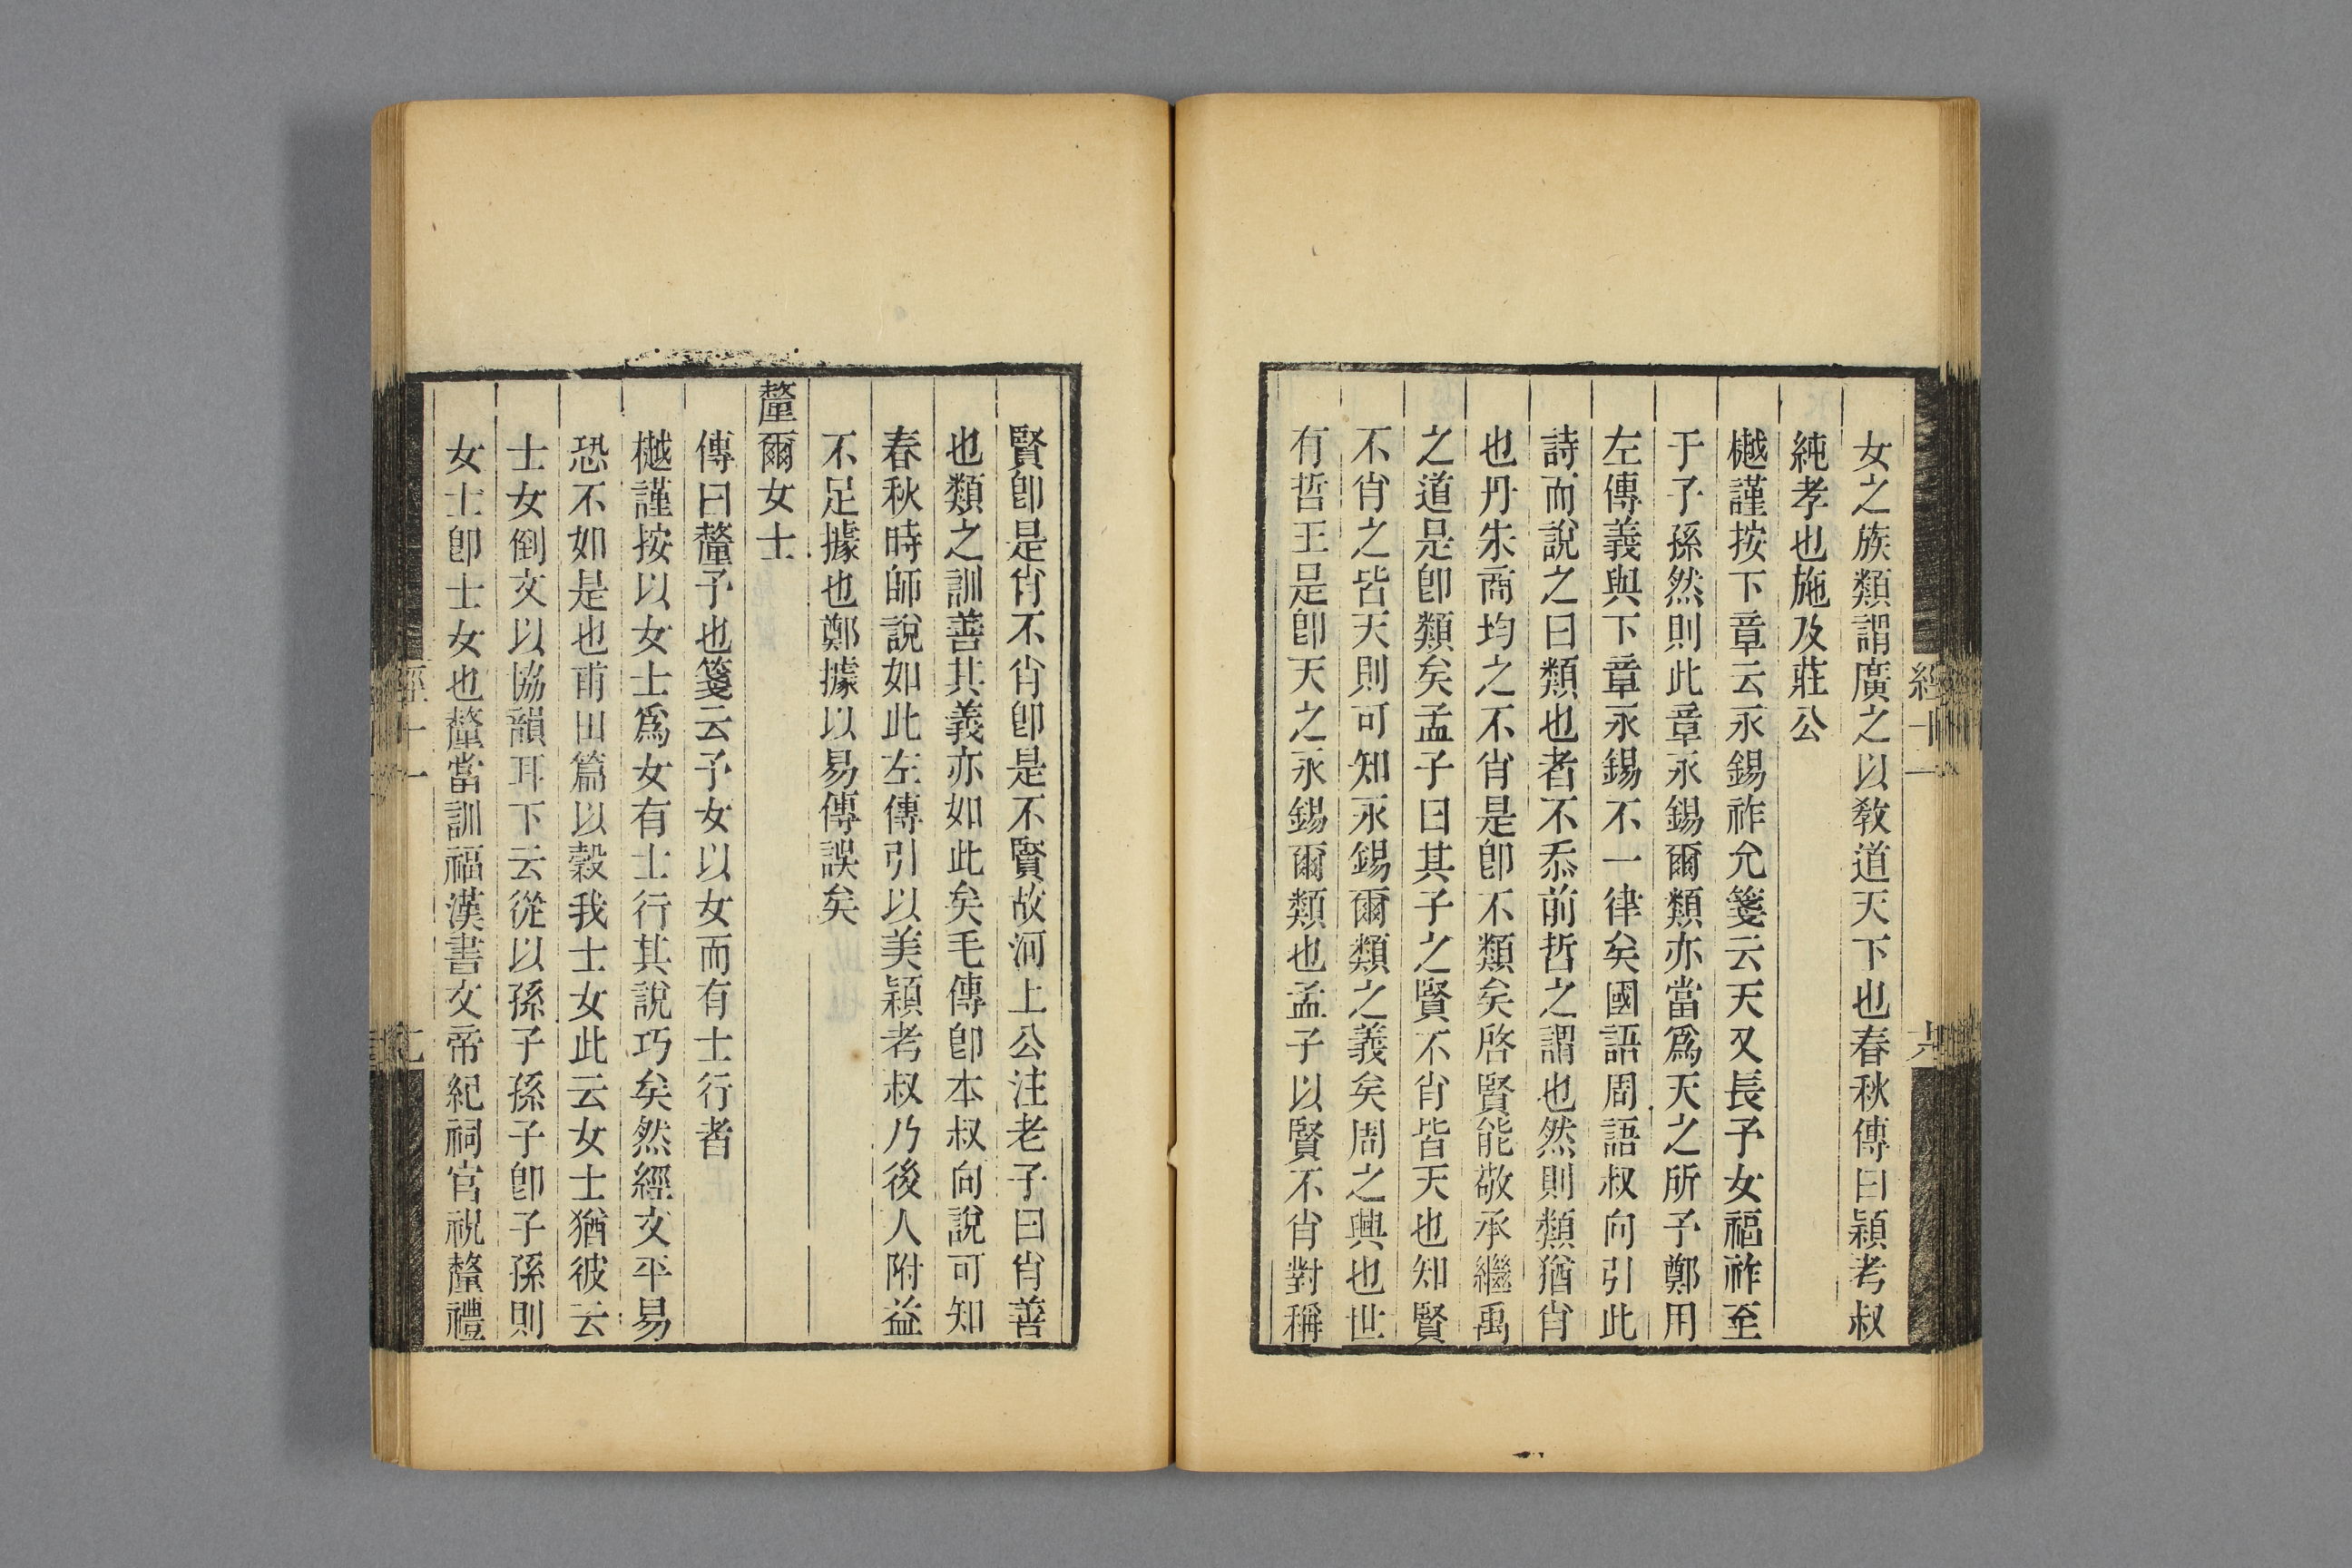 女之族類謂廣之以敎道天下也春秋傳曰穎考叔
純孝也施及莊公
樾謹按下章云永錫祚允箋云天又長予女福祚至
于子孫然則此章永錫爾類亦當爲天之所予鄭用
左傳義與下章永錫不一律矣國語周語叔向引此
詩而說之曰類也者不忝前哲之謂也然則類猶肖
也丹朱商均之不肖是卽不類矣啓賢能敬承繼禹
之道是卽類矣孟子曰其子之賢不肖皆天也知賢
不肖之皆天則可知永錫爾類之義矣周之興也世
有哲王是卽天之永錫爾類也孟子以賢不肖對稱
賢卽是肖不肖卽是不賢故河上公注老子曰肖善
也類之訓善其義亦如此矣毛傳卽本叔向說可知
春秋時師說如此左傳引以美穎考叔乃後人附益
不足據也鄭據以易傳誤矣
釐爾女士
傳曰釐予也箋云予女以女而有士行者
樾謹按以女士爲女有士行其說巧矣然經文平易
恐不如是也甫田篇以穀我士女此云女士猶彼云
士女倒文以協韻耳下云從以孫子孫子卽子孫則
女士卽士女也釐當訓福漢書文帝紀祠官祝釐禮
經十一